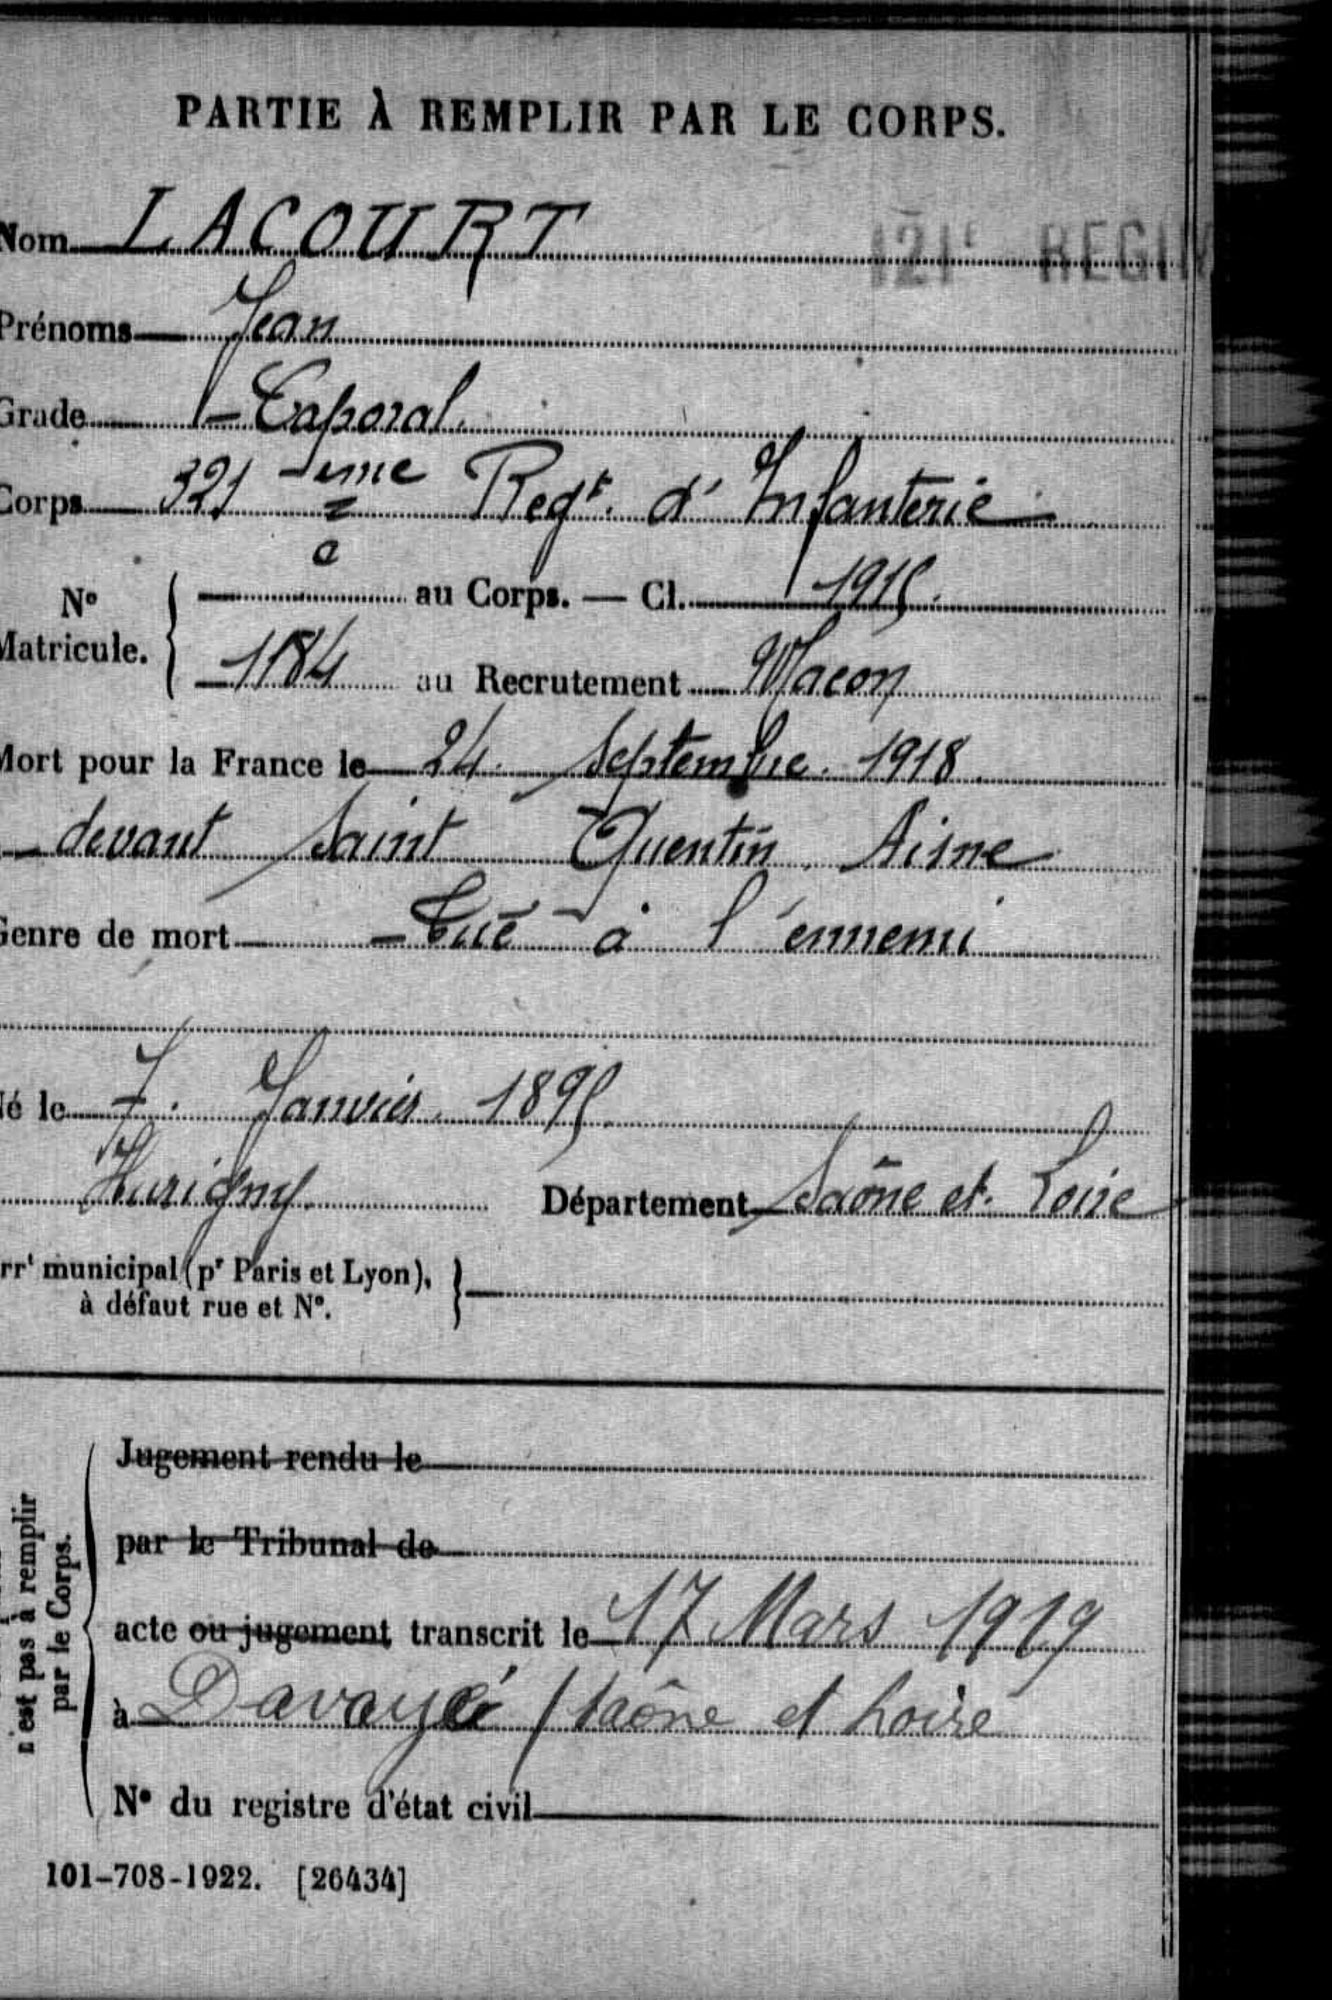 PARTIE À REMPLIR PAR LE CORPS.
Nom LACOURT
121e REGIM
Prénoms Jean
Grade Caporal.
Corps 321 eme Regt. d'Infanterie
N° Matricule. { au Corps. — Cl. 1915.
1184 au Recrutement Macon
Mort pour la France le 24. Septembre. 1918.
devant Saint Quentin, Aisne
Genre de mort Tué à l'ennemi
Né le 7. Janvier. 1895.
Hurigny. Département Saône et. Loire
arrt municipal (pr Paris et Lyon),
à défaut rue et N°. }
Jugement rendu le
par le Tribunal de
acte ou jugement transcrit le 17 Mars 1919
à Davayé (Saône et Loire
N° du registre d'état civil
n'est pas à remplir
par le Corps.
101-708-1922. [26434]